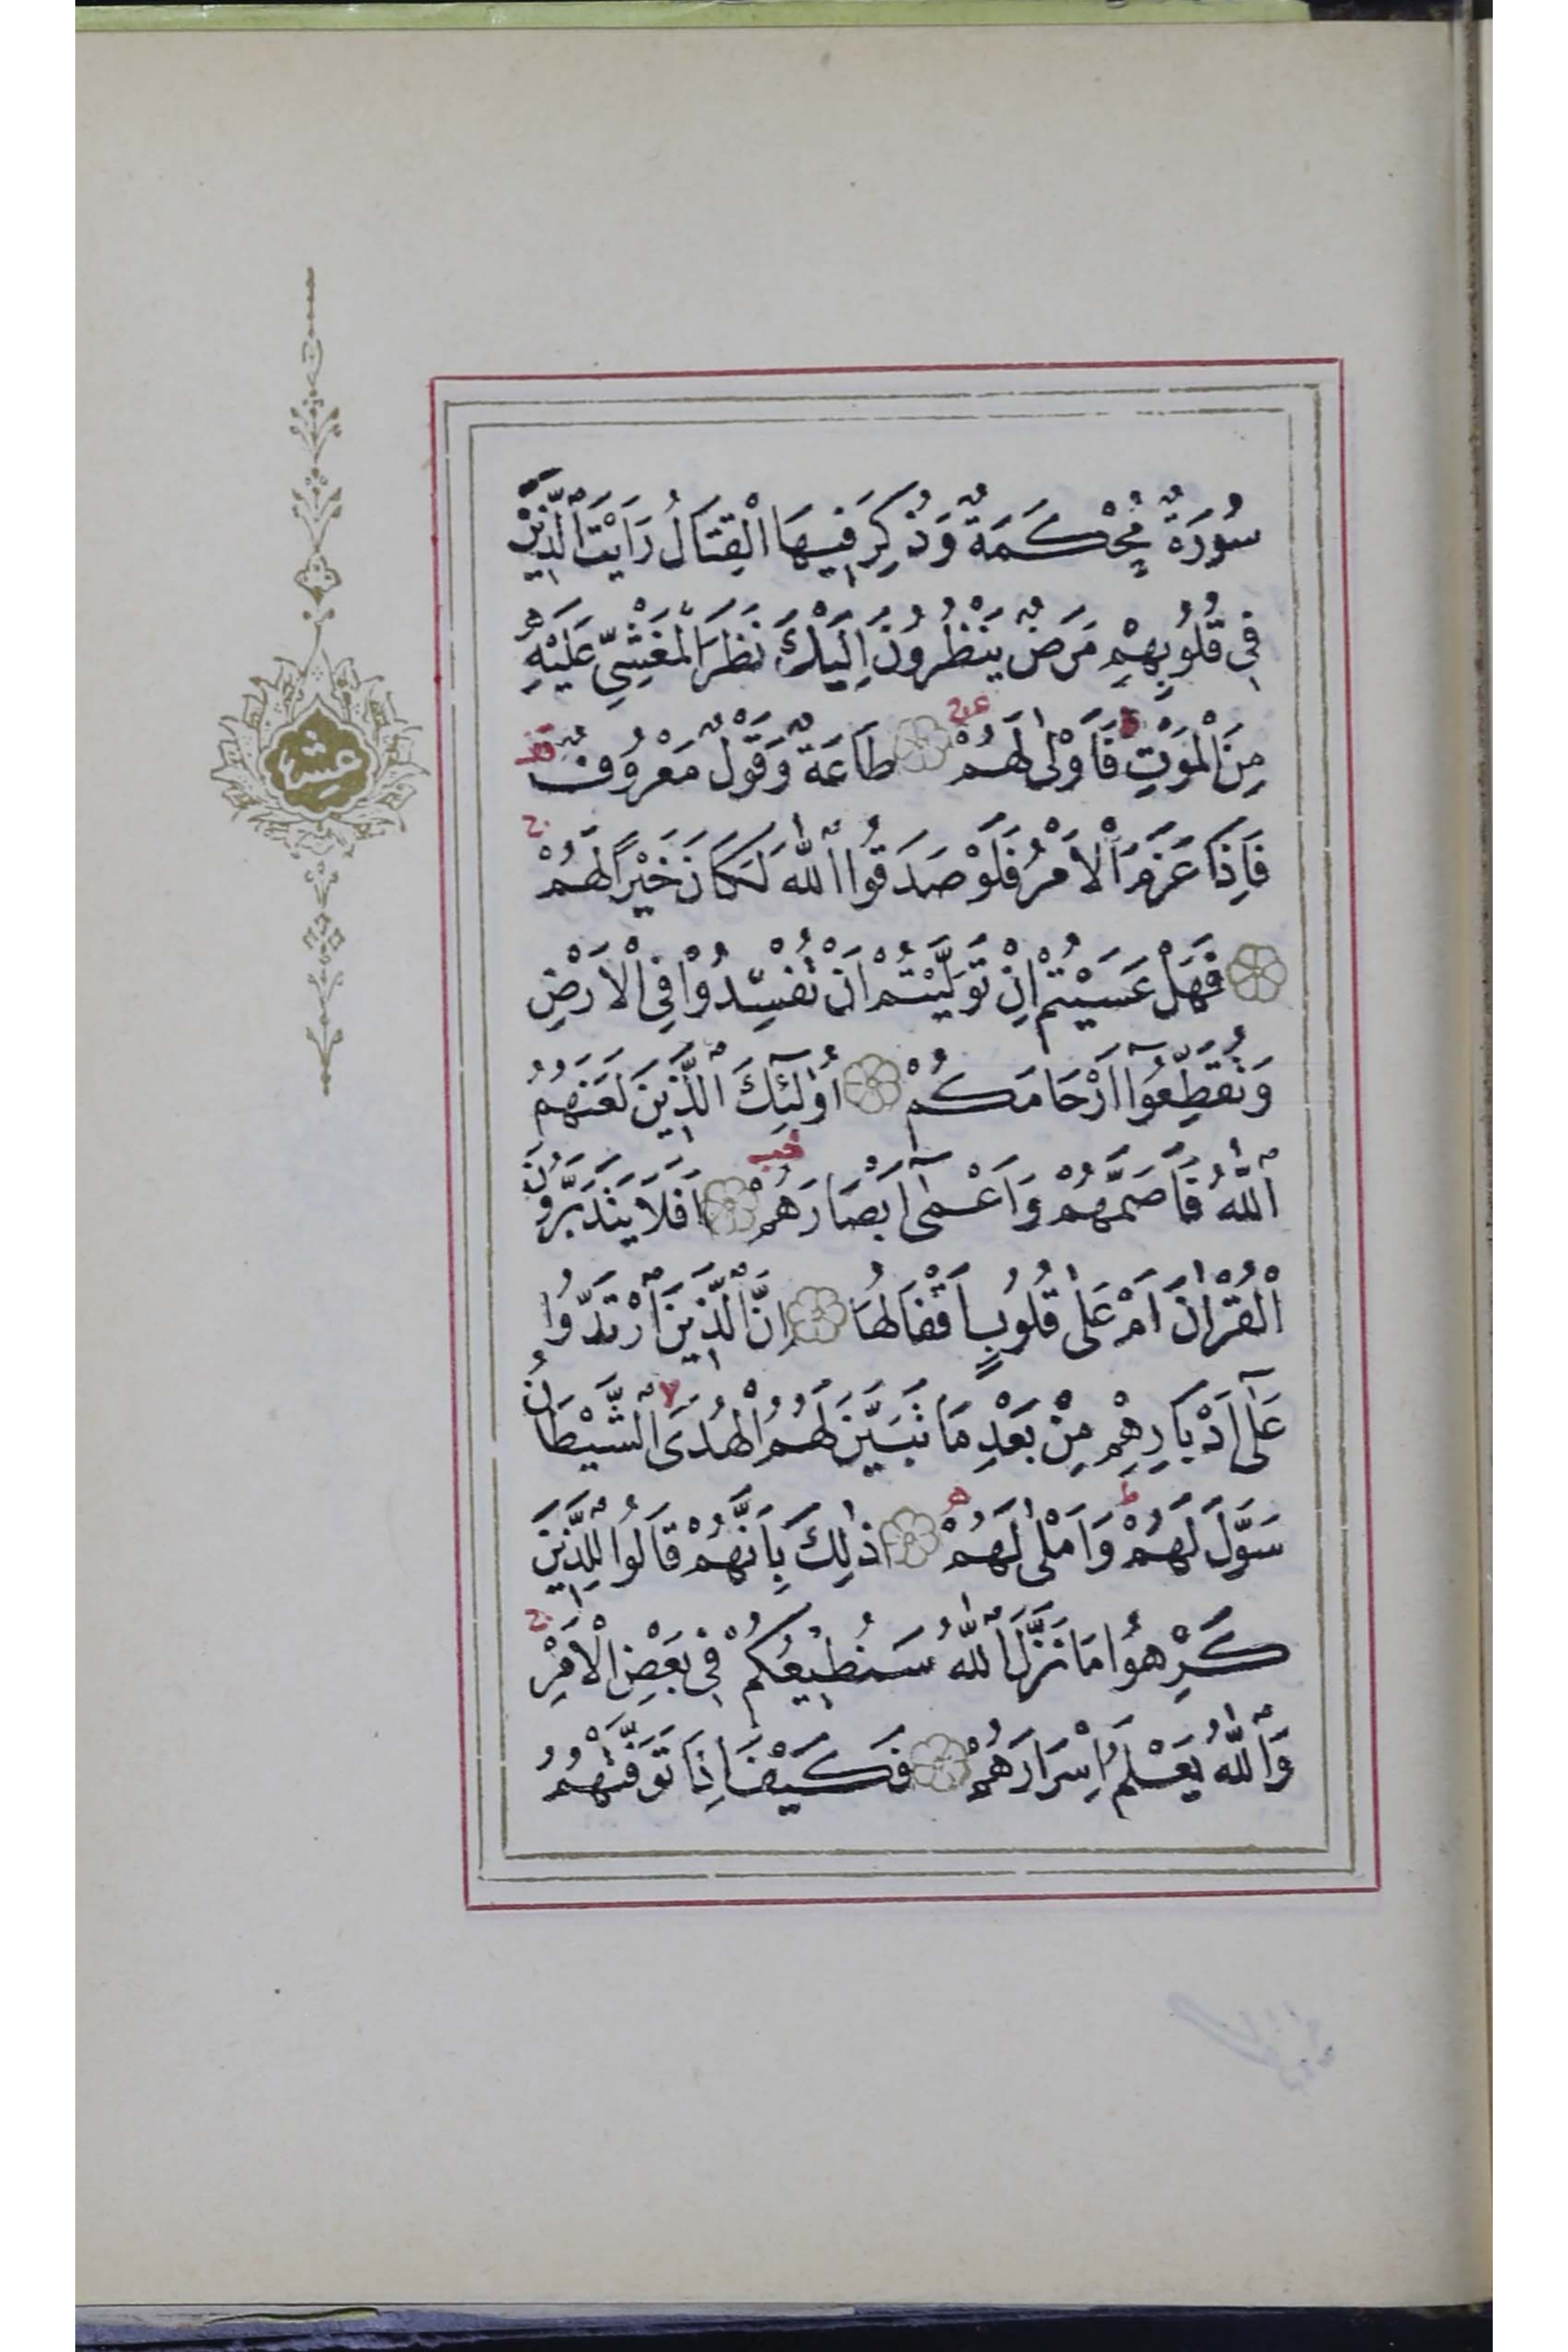 سُورَةٌ مُحْكَمَةٌ وَذُكِرَ فِيهَا الْقِتَالُ رَاَيْتَ ٱلَّذِينَ
فِي قُلُوبِهِمْ مَرَضٌ يَنْظُرُونَ اِلَيْكَ نَظَرَ الْمَغْشِيِّ عَلَيْهِ
مِنَ الْمَوْتِ ط فَاَوْلٰى لَهُمْ ۝ طَاعَةٌ وَقَوْلٌ مَعْرُوفٌ
فَاِذَا عَزَمَ الْاَمْرُ فَلَوْ صَدَقُوا ٱللّٰهَ لَكَانَ خَيْرًا لَهُمْ ج
۝ فَهَلْ عَسَيْتُمْ اِنْ تَوَلَّيْتُمْ اَنْ تُفْسِدُوْا فِى الْاَرْضِ
وَتُقَطِّعُوٓا اَرْحَامَكُمْ ۝ اُو۬لٰٓئِكَ ٱلَّذِينَ لَعَنَهُمُ
ٱللّٰهُ فَاَصَمَّهُمْ وَاَعْمٰٓى اَبْصَارَهُمْ ۝ اَفَلَا يَتَدَبَّرُونَ
الْقُرْاٰنَ اَمْ عَلٰى قُلُوبٍ اَقْفَالُهَا ۝ اِنَّ ٱلَّذِينَ ٱرْتَدُّوا
عَلٰٓى اَدْبَارِهِمْ مِنْ بَعْدِ مَا تَبَيَّنَ لَهُمُ الْهُدَى لا ٱلشَّيْطَانُ
سَوَّلَ لَهُمْ ط وَاَمْلٰى لَهُمْ ۝ ذٰلِكَ بِاَنَّهُمْ قَالُوا لِلَّذِينَ
كَرِهُوا مَا نَزَّلَ ٱللّٰهُ سَنُطِيعُكُمْ فِى بَعْضِ الْاَمْرِ ج
وَٱللّٰهُ يَعْلَمُ اِسْرَارَهُمْ ۝ فَكَيْفَ اِذَا تَوَفَّتْهُمُ
عشر